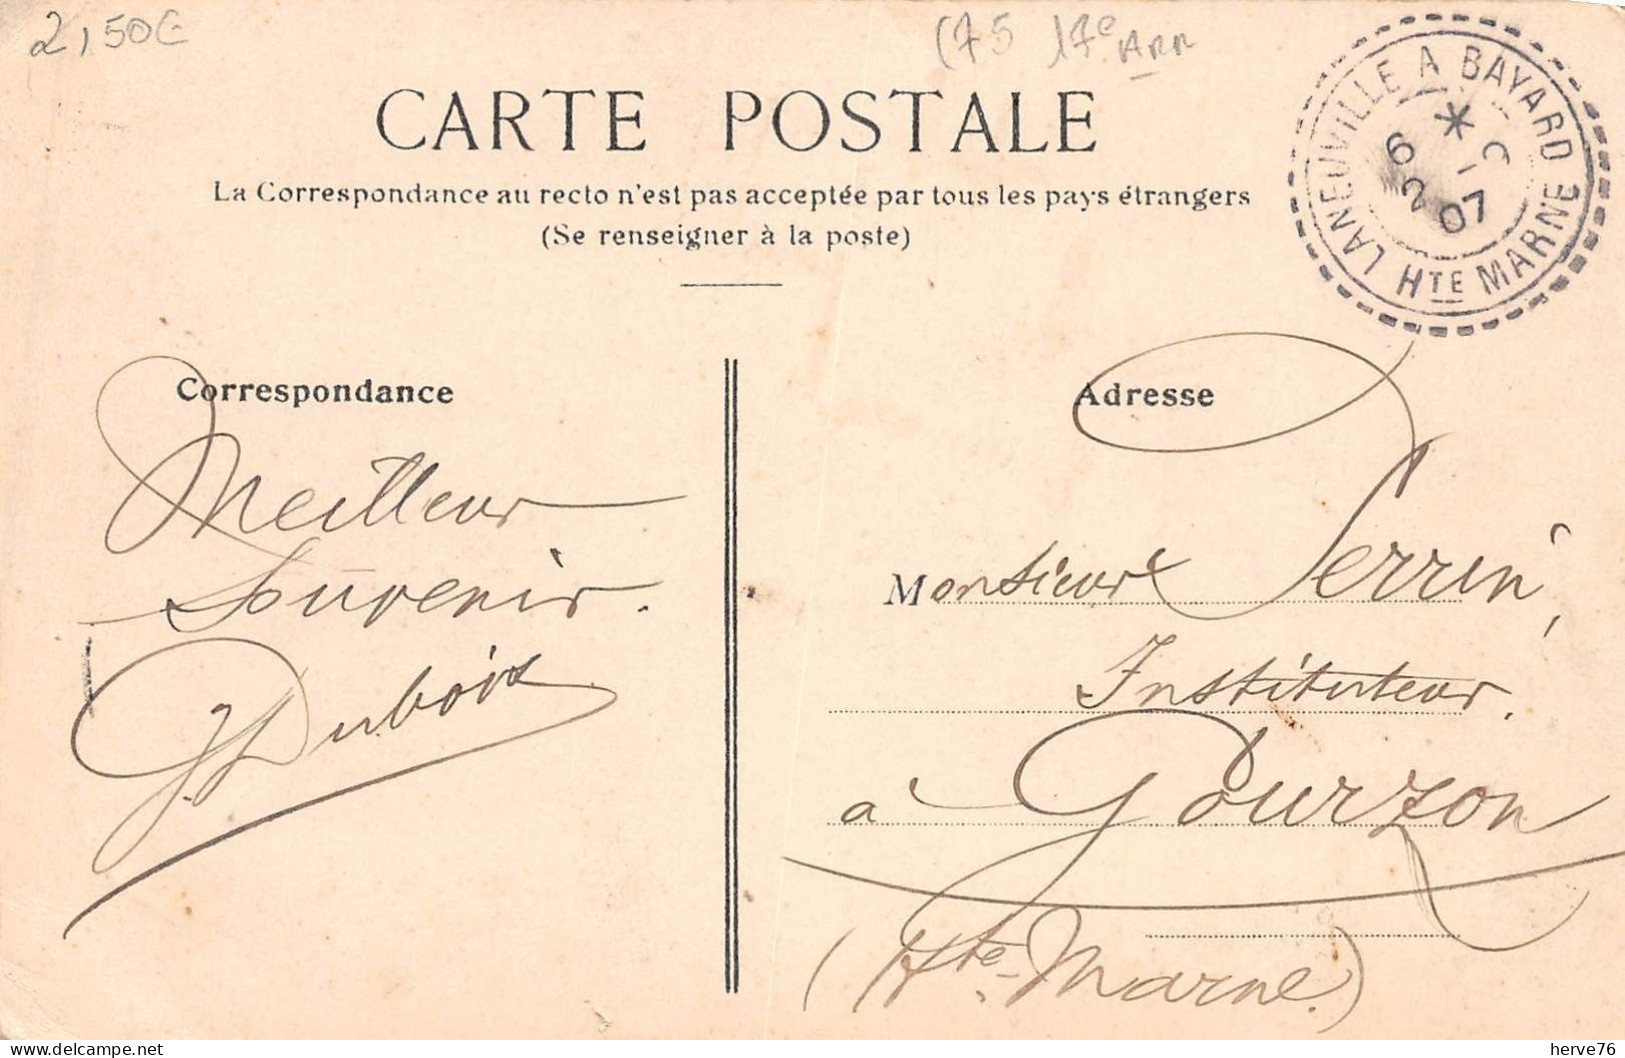 2,50€
(75 17e Arr
CARTE POSTALE
La Correspondance au recto n'est pas acceptée par tous les pays étrangers
(Se renseigner à la poste)
LANEUVILLE A BAYARD
6
2 07
HTE MARNE
Correspondance
Meilleur
Souvenir.
J Dubois
Adresse
Monsieur Perrin,
Instituteur.
à Gourzon
(Hte-Marne)
herve76